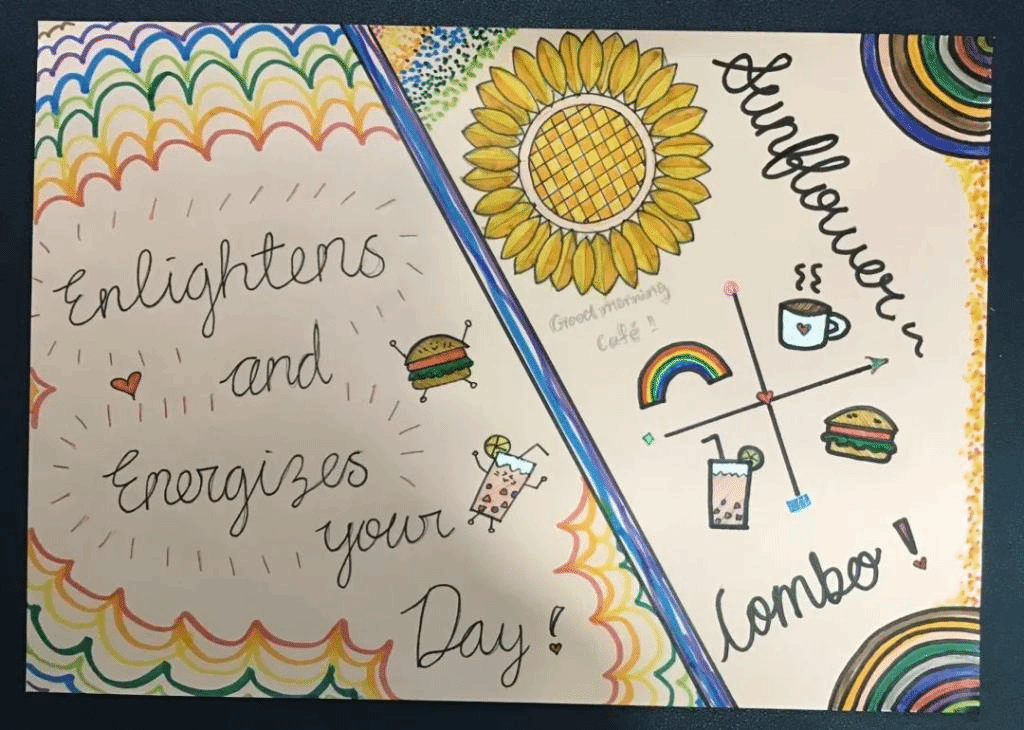 Enlightens
and
Energizes
your
Day!
Sunflower~
Good morning
Café!!
Combo!